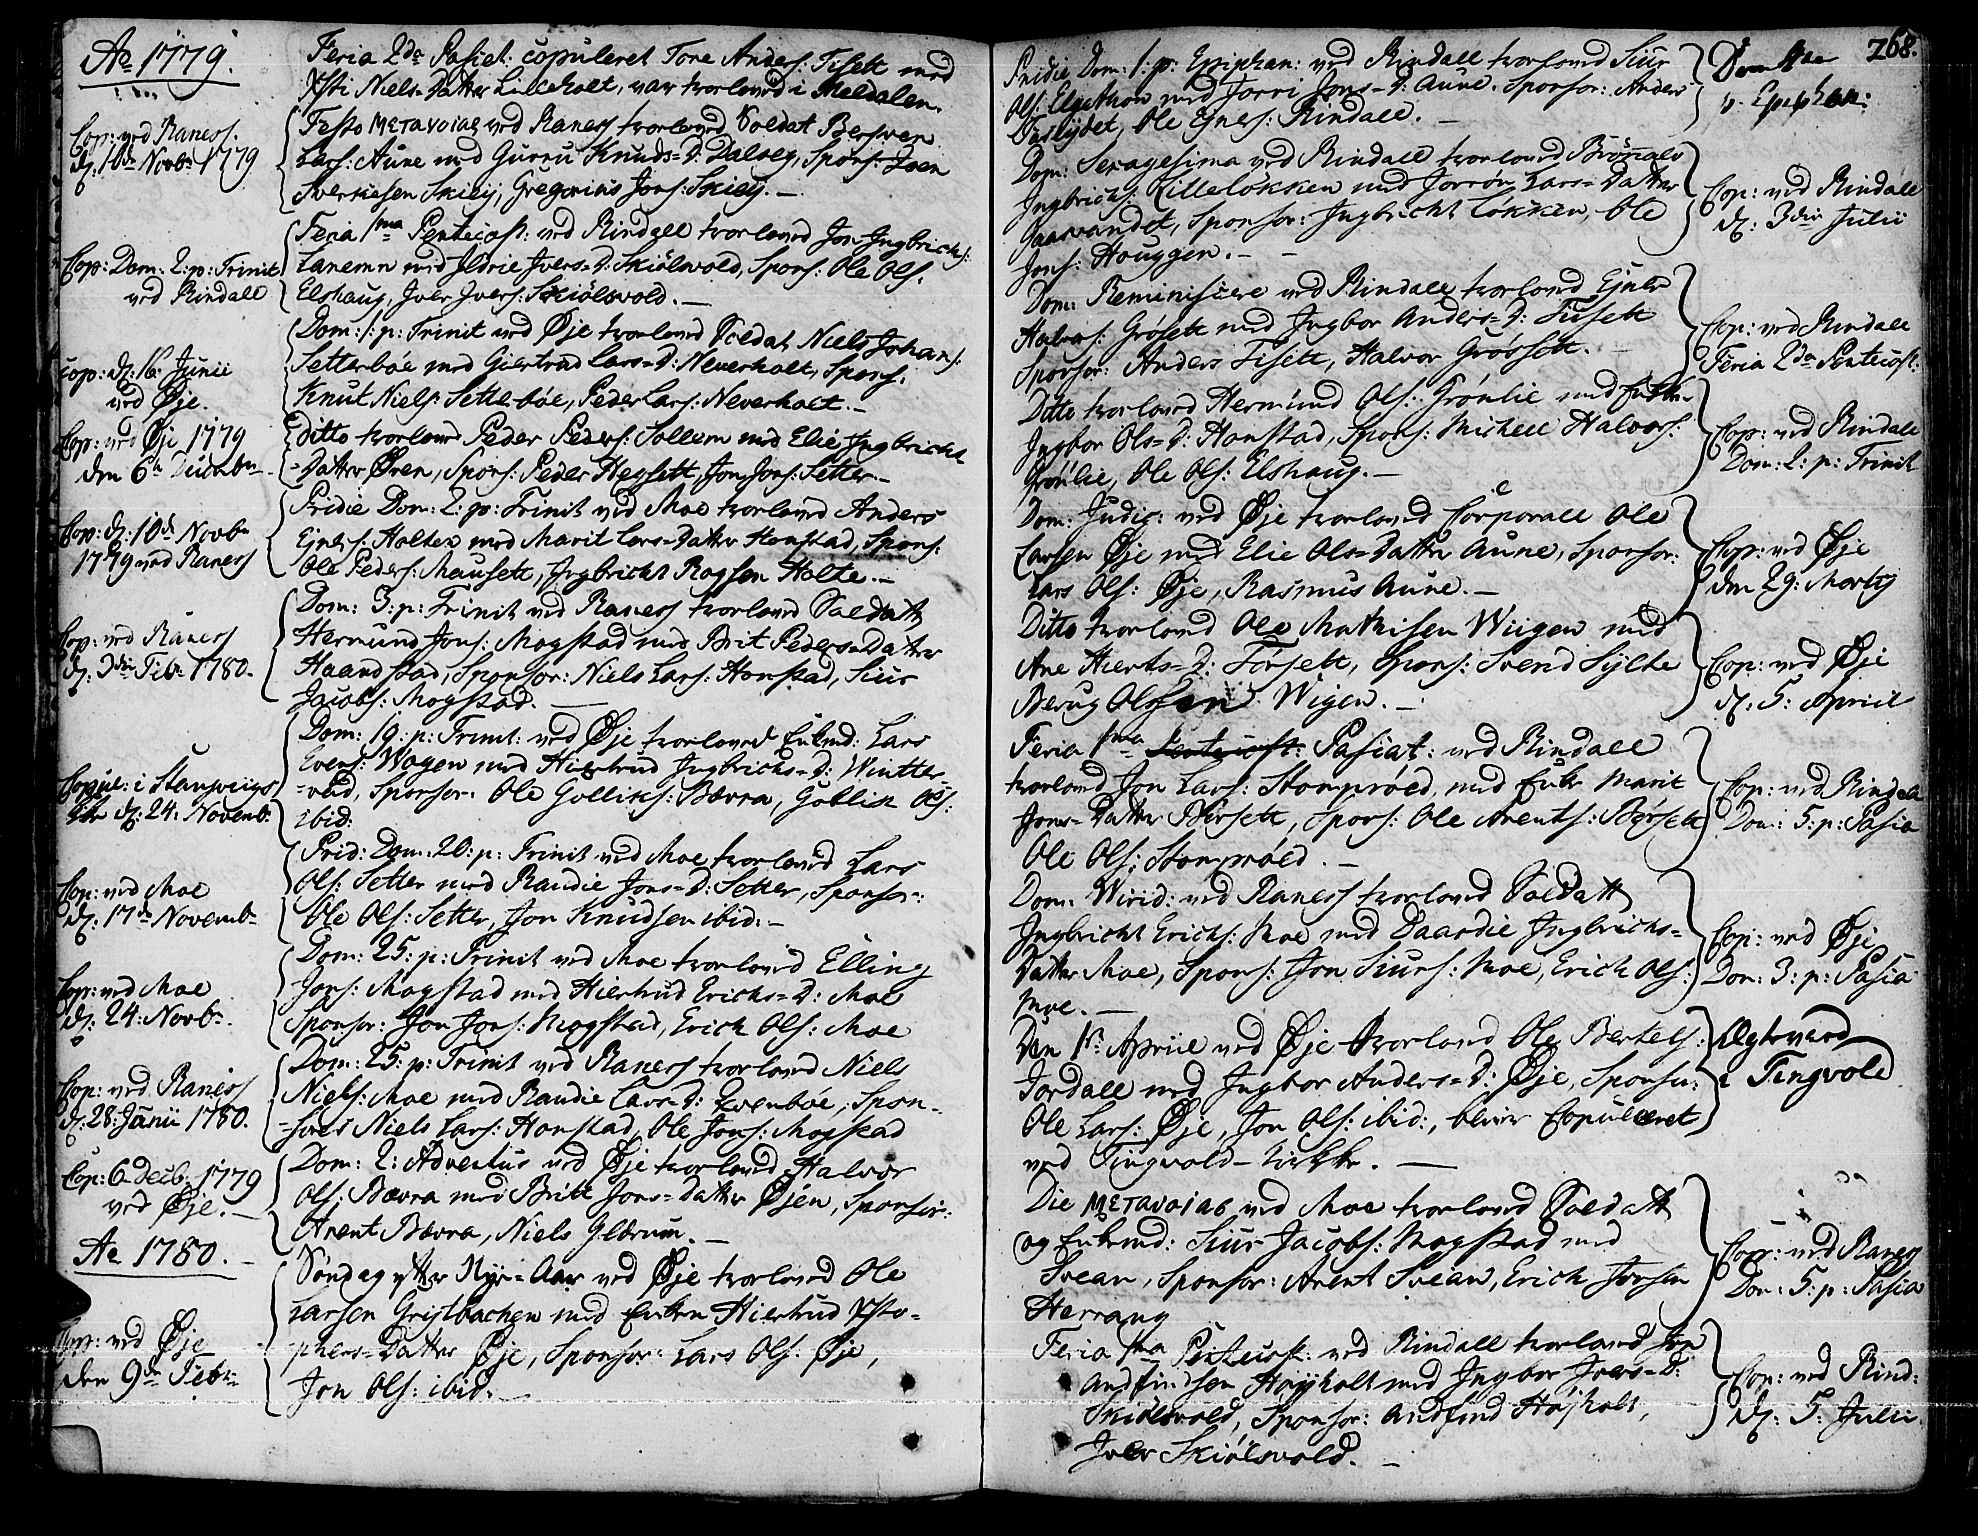 Ao 1779.
Feria 2da Pasch: copuleret Tore Anders: Fiset med
Kisti Niels-Datter Lilleholt, var troloved i Meldalen.
Cop: ved Ranes
d: 10de Novbr 1779
Festo μετανοιας ved Ranes troloved Soldat Berswen
Lars: Aune med Gurru Knuds-D: Dalseg, Spons: Joen
Sverkesen Skiey, Gregorius Jons: Skiey.
Cop: Dom: 2: p: Trinit
ved Rindall
Feria 1ma Pentecost: ved Rindall troloved Jon Ingbrichs:
Lanemn med Ildrie Ivers-D: Skiölsvold, Spons: Ole Ols:
Elshaug, Iver Ivers: Skiölsvold.
cop: d: 16: Junii
ved Øje.
Dom: 1: p: Trinit ved Øje troloved Soldat Niels Johans:
Setterbøe med Giertrud Lars-D: Neverholt, Spons:
Knut Niels: Setterbøe, Peder Lars: Neverholt.
Cop: ved Øje 1779
den 6te Decembr
ditto trolovd Peder Peders: Sollem med Elie Ingbrichts
-Datter Ören, Spons: Peder Hegsett, Jon Jons: Setter.
Cop: d: 10de Novbr
1779 ved Raness
Pridie Dom: 2: p: Trinit ved Moe trolovd Anders
Ejners: Holten med Marit Lars-Datter Honstad, Spons:
Ole Peders: Mauseth, Ingbricht Rogsen Holte.
Cop: ved Raness
d: 3die Febr 1780.
Dom: 3: p: Trinit ved Raness trolovd Soldatt
Hermund Jons: Mogstad med Brit Peders-Datter
Haandstad, Sponsor: Niels Lars: Honstad, Siur
Jacobs: Mogstad.
Copul: i Stangwiigs
Kirke d: 24: Novemb:
Dom: 19: p: Trinit: ved Øje trolovd Enkmd: Lars
Evens: Wogen med Hiertrud Ingbrichs-D: Wintter-
-vold, Sponsor: Ole Golliks: Bævra, Gollik Ols:
ibid:
Cop: ved Moe
d: 17de Novembr
Prid: Dom: 20: p: Trinit ved Moe trolovd Lars
Ols: Setter med Randie Jons-D: Setter, Sponsor:
Ole Ols: Setter, Jon Knudsen ibid:
Cop: ved Moe
d: 24: Novbr
Dom: 25: p: Trinit ved Moe trolovd Elling
Jons: Mogstad med Hiertrud Erichs-D: Moe
Sponsor: Jon Jons: Mogstad, Erich Ols: Moe
Cop: ved Raness
d: 28: Junii 1780.
Dom: 25: p: Trinit ved Raness trolovd Niels
Niels: Moe med Randie Lars-D: Evenbøe, Spon-
-sores Niels Lars: Honstad, Ole Jons: Mogstad
Cop: 6 Decb: 1779
ved Øje.
Dom: 2: Adventus ved Øje trolovd Halvor
Ols: Bævra med Britt Jons-Datter Øjen, Sponsor:
Arent Bævra, Niels Glærum.
Ao 1780.
Cop: ved Øje
den 9de Febr:
Söndag efter Nye-Aar ved Øje trolovd Ole
Larsen Gristbachen med Enken Hiertrud Xsto-
-phers-Datter Øje, Sponsor: Lars Ols: Øje,
Jon Ols: ibid:
268.
Pridie Dom: 1: p: Epiphan: ved Rindall trolovd Siur
Ols: Elgethon med Jorri Jons-D: Aune. Sponsor: Anders
Ole Ejners: Rindall.
p: Epiphan:
Dom: Sexagesima ved Rindall trolovd Brönnolv
Ingbrichs: Lilleløkken med Jorrön Lars-Datter
Gaasvandet, Sponsor: Ingbricht Løkken, Ole
Jons: Houggen.
Cop: ved Rindall
d: 3die Julii
Dom: Reminiscere ved Rindall trolovd Ejner
Halvors: Grösett med Ingbor Anders-D: Fisett
Sponsor: Anders Fisett, Halvor Grössett.
Cop: ved Rindall
Feria 2da Pentecost:
Ditto trolovd Hermund Ols: Grönlie med Enken
Ingbor Ols-D: Honstad, Spons: Michell Halvors:
Grönlie, Ole Ols: Elshaug.
Cop: ved Rindall
Dom: 2: p: Trinit
Dom: Judic: ved Øje trolovd Corporall Ole
Larsen Øje med Elie Ols-Datter Aune, Sponsor:
Lars Ols: Øje, Rasmus Aune.
Cop: ved Øje
den 29: Martij
Ditto trolovd Ole Mathisen Wiigen med
Ane Hierts-D: Törsett, Spons: Svend Sylte
Berug Olssen Wigen.
Cop: ved Øje
d: 5: April
Feria 1ma Pentecost: Pasiat: ved Rindall
trolovd Jon Lars: Stomprøed, med Enke Marit
Jons-Datter Börsett, Spons: Ole Arents: Börsett
Ole Ols: Stomprøed.
Cop: ved Rindall
Dom: 5: p: Pasia
Dom: Wirid: ved Raness trolovd Soldatt
Ingbricht Erichs: Moe med Daardie Ingbrichs-
Datter Moe, Spons: Jon Siurs: Moe, Erich Ols:
Moe.
Cop: ved Øje
Dom: 3: p: Pasia
Den 1te April ved Øje trolovd Ole Bertels:
Jordall med Ingbor Anders-D: Øje, Sponsor:
Ole Lars: Øje, Jon Ols: ibid:, bliver Copuleret
ved Tingvold-Kirke.
Ægteviid
i Tingvold
Die μετανοιας ved Moe trolovd Soldatt
og Enkmd: Siur Jacobs: Mogstad med
Svean, Sponsor: Arent Svean, Erich Torsen
Herrang
Cop: ved Raness
Dom: 5: p: Pasia
Feria 1ma Pentecost: ved Rindall trolovd Jon
Andfindsen Højholt med Ingbor Ivers-D:
Skiölsvold, Sponsor: Andfind Højholt,
Iver Skiölsvold.
Cop: ved Rind:
d: 5: Julii